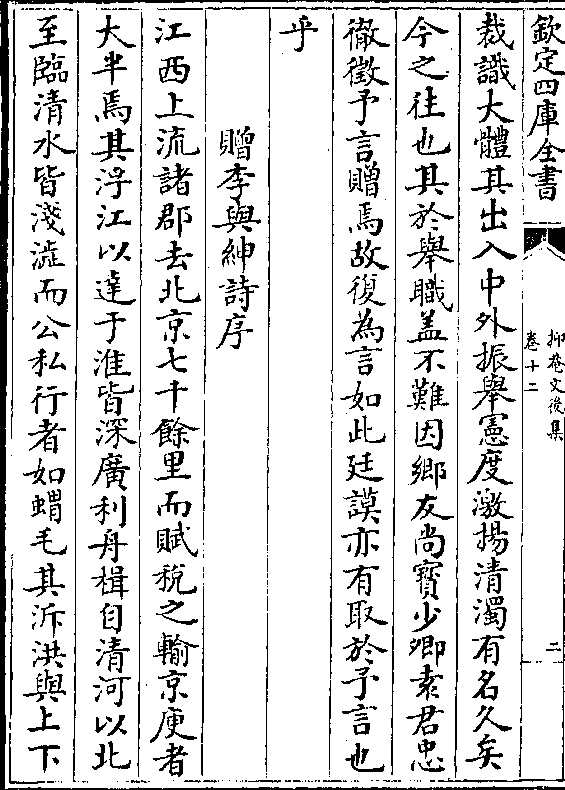 欽定四庫全書
抑菴文後集
卷十二
二
裁識大體其出入中外振舉憲度激揚清濁有名久矣
今之往也其於舉職蓋不難因鄉友尚寳少卿袁君忠
徹徵予言贈焉故復為言如此廷謨亦有取於予言也
乎
贈李與紳詩序
江西上流諸郡去北京七千餘里而賦稅之輸京庾者
大半焉其浮江以達于淮皆深廣利舟楫自清河以北
至臨清水皆淺澁而公私行者如蝟毛其泝洪與上下